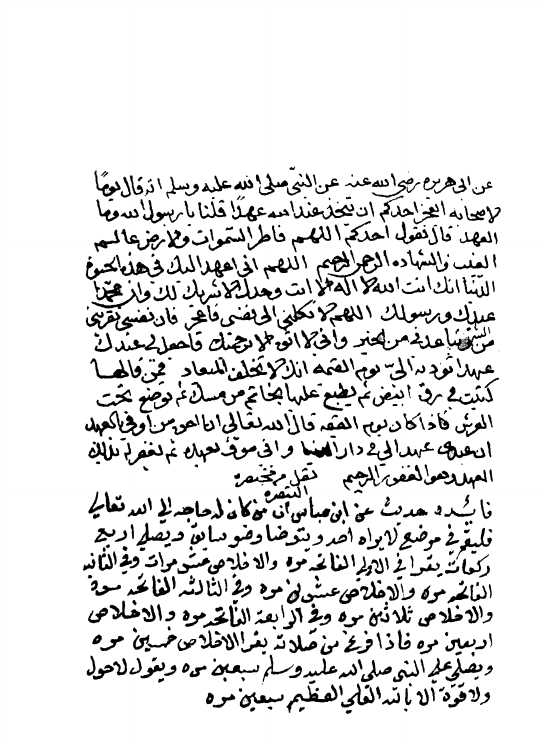 عن ابى هريره رضى الله عنه عن النبى صلى الله عليه وسلم انه قال يوما
لاصحابه ايعجز احدكم ان يتخذ عند الله عهدا قلنا يا رسول الله وما
العهد قال يقول احدكم اللهم فاطر السموات والارض عالم
الغيب والشهاده الرحمن الرحيم اللهم انى اعهد اليك فى هذه الحيوة
الدنيا انك انت الله لا اله الا انت وحدك لا شريك لك وان محمدا
عبدك ورسولك اللهم لا تكلنى الى نفسى فاعجز فان نفسى تقربنى
من الشر وتباعدنى من الخير وانى لا اثق الا برحمتك فاجعل لى عندك
عهدا تؤديه الىّ يوم القيمه انك لا تخلف الميعاد فمن قالها
كتبت فى رق ابيض ثم يطبع عليها بخاتم من مسك ثم توضع تحت
العرش فاذا كان يوم القيمه قال الله تعالى انا احق من اوفى بالعهد
ان عبدى عهد الى فى دار الدنيا وانى موف بعهده ثم يغفر له بذلك
العهد وهو الغفور الرحيم نقل من مختصره
التبصره
فائده حديث عن ابن عباس ان من كان له حاجه الى الله تعالى
فليقم فى موضع لا يراه احد ويتوضا وضو سابق ويصلى اربع
ركعات يقرا فى الاولى الفاتحه مره والاخلاص عشر مرات وفى الثانيه
الفاتحه مره والاخلاص عشرين مره وفى الثالثه الفاتحه مره
والاخلاص ثلاثين مره وفى الرابعة الفاتحه مره والاخلاص
اربعين مره فاذا فرغ من صلاته يقرا الاخلاص خمسين مره
ويصلى على النبى صلى الله عليه وسلم سبعين مره ويقول لا حول
ولا قوة الا بالله العلي العظيم سبعين مره